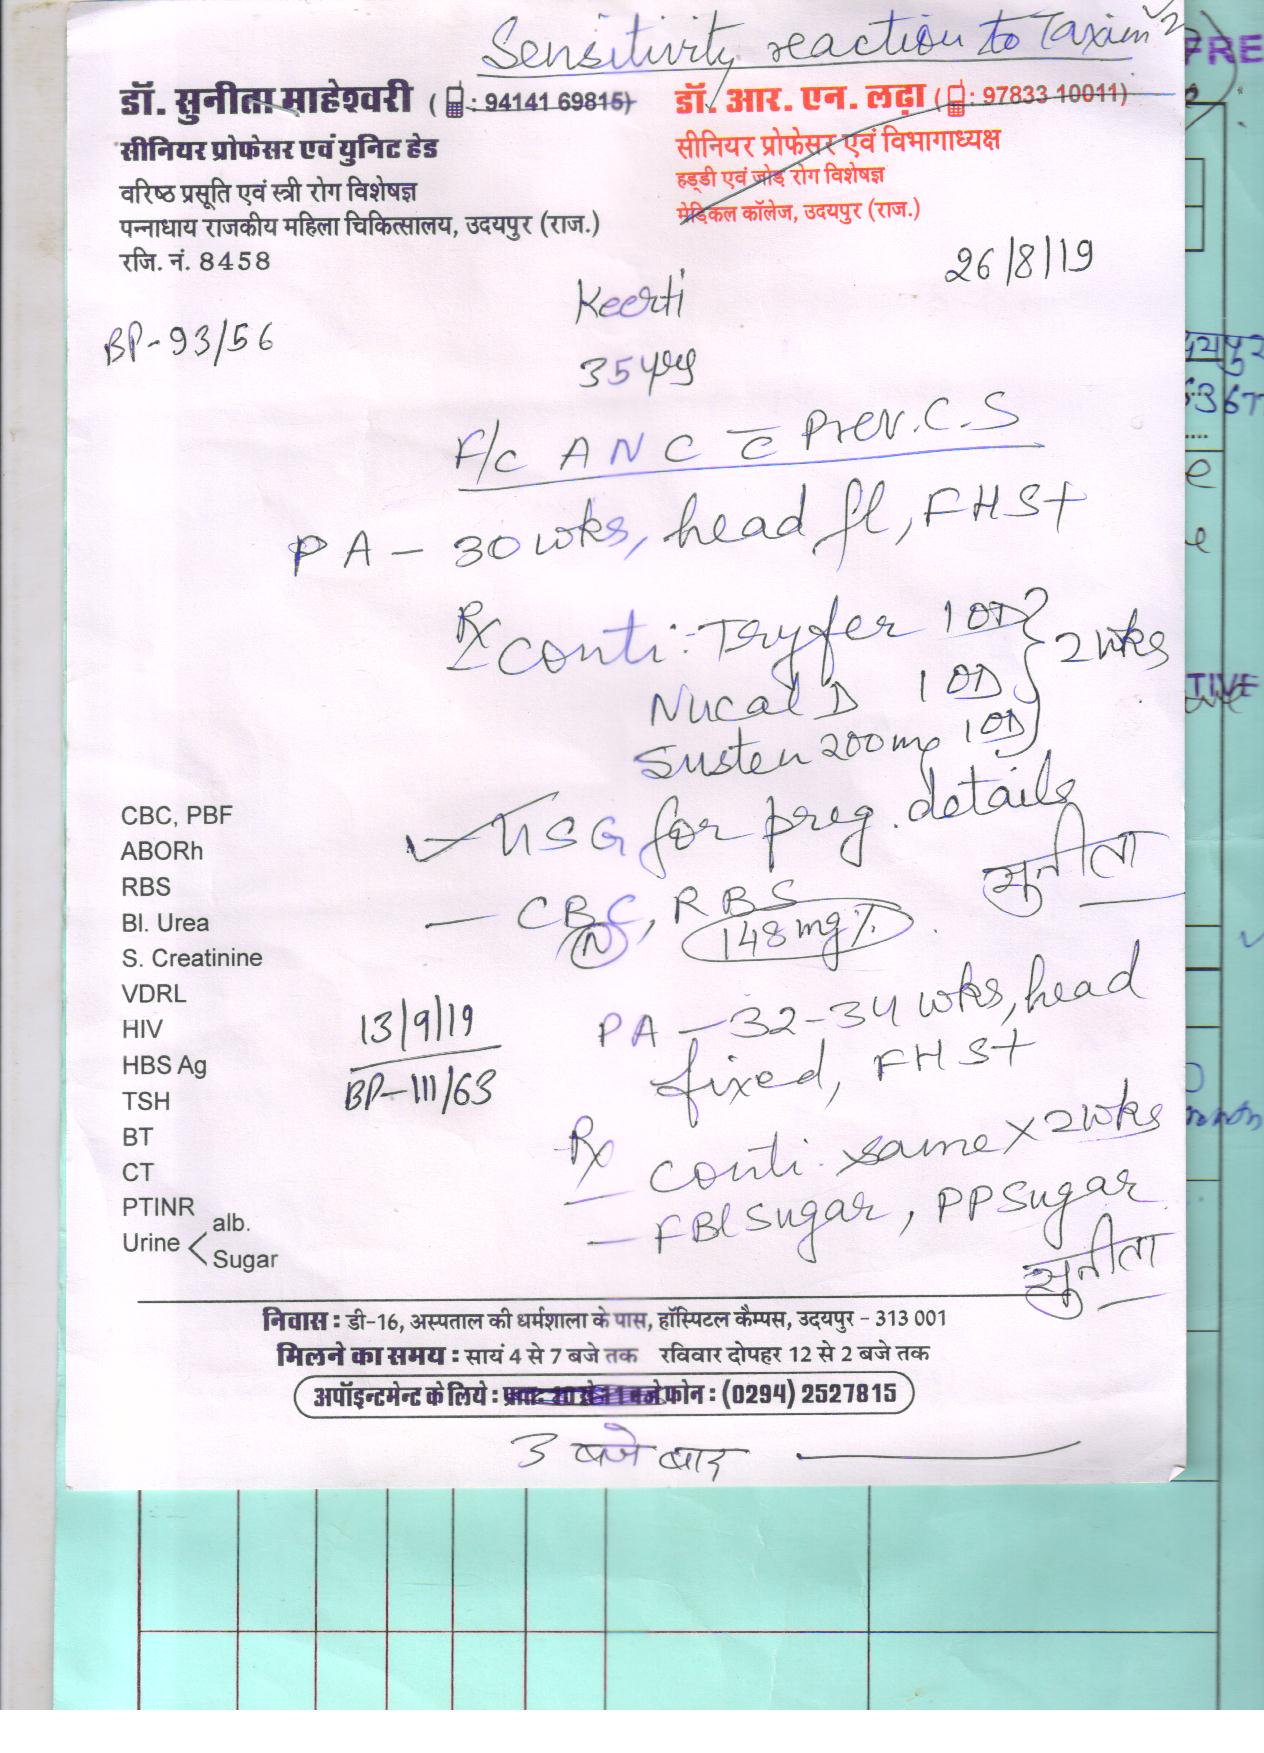 Sensitivity reaction to Taxim
डॉ. सुनीता माहेश्वरी ( : 94141 69815)
सीनियर प्रोफेसर एवं युनिट हेड
वरिष्ठ प्रसूति एवं स्त्री रोग विशेषज्ञ
पन्नाधाय राजकीय महिला चिकित्सालय, उदयपुर (राज.)
रजि. नं. 8458
डॉ. आर. एन. लढ़ा ( : 97833 10011)
सीनियर प्रोफेसर एवं विभागाध्यक्ष
हड्डी एवं जोड़ रोग विशेषज्ञ
मेडिकल कॉलेज, उदयपुर (राज.)
26/8/19
Keerti
BP-93/56
35 yrs
F/c ANC c̅ Prev. C.S
PA - 30 wks, head fl, FHS+
Rx Conti: Tryfer 1 OD } 2 wks
Nucal D 1 OD
Susten 200mg 1 OD
USG for preg. details
सुनीता
- CBC, RBS
(N) 148 mg%
CBC, PBF
ABORh
RBS
Bl. Urea
S. Creatinine
VDRL
HIV
HBS Ag
TSH
BT
CT
PTINR
Urine < alb.
Sugar
13/9/19
BP-111/63
PA - 32-34 wks, head
fixed, FHS+
Rx
Conti. same x 2 wks
- F Bl Sugar, PP Sugar
सुनीता
निवास : डी-16, अस्पताल की धर्मशाला के पास, हॉस्पिटल कैम्पस, उदयपुर - 313 001
मिलने का समय : सायं 4 से 7 बजे तक रविवार दोपहर 12 से 2 बजे तक
अपॉइन्टमेन्ट के लिये : फोन : (0294) 2527815
3 बजे बाद
PRE
दयपुर
TIVE